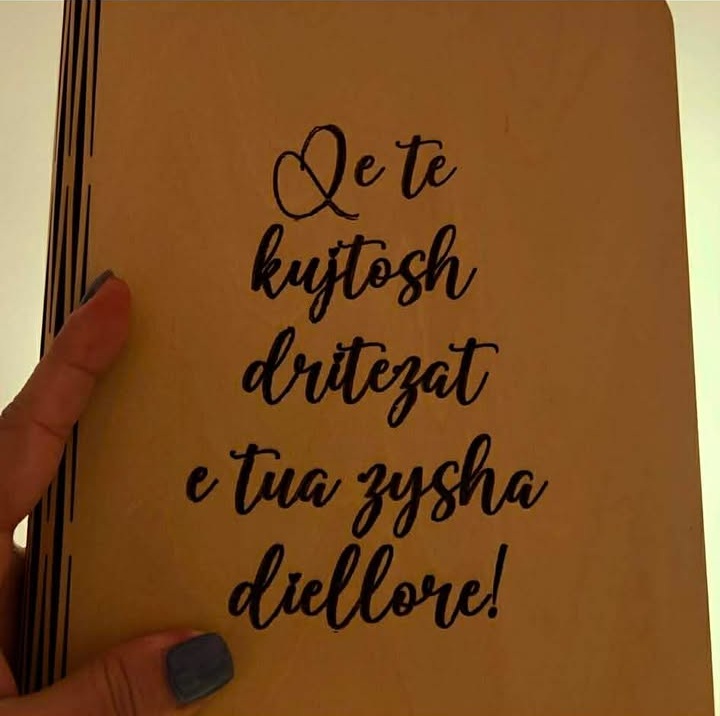 Qe te
kujtosh
dritezat
e tua zysha
diellore!